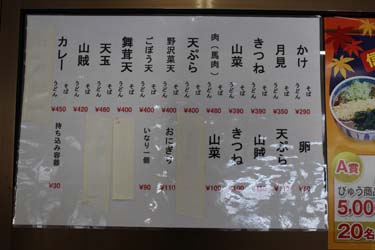 かけ そば うどん ¥290
月見 そば うどん ¥350
きつね そば うどん ¥390
山菜 そば うどん ¥390
肉(馬肉) そば うどん ¥480
天ぷら そば うどん ¥400
野沢菜天 そば うどん ¥400
ごぼう天 そば うどん ¥400
舞茸天 そば うどん ¥400
天玉 そば うどん ¥460
山賊 そば うどん ¥420
カレー そば うどん ¥450
卵 ¥60
天ぷら ¥110
山賊
きつね ¥100
山菜 ¥100
おにぎり ¥110
いなり一個 ¥90
持ち込み容器 ¥30
A賞
びゅう商品
5,00
20名